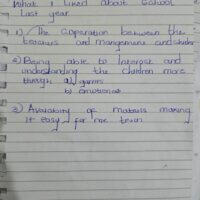 What I liked about School
Last year
1) The Coperation between the
teachers and mangement and
2) Being able to Interpst and
understanding the children more
through a) games
b) emotional
3) Avalability of materis making
it easy for me